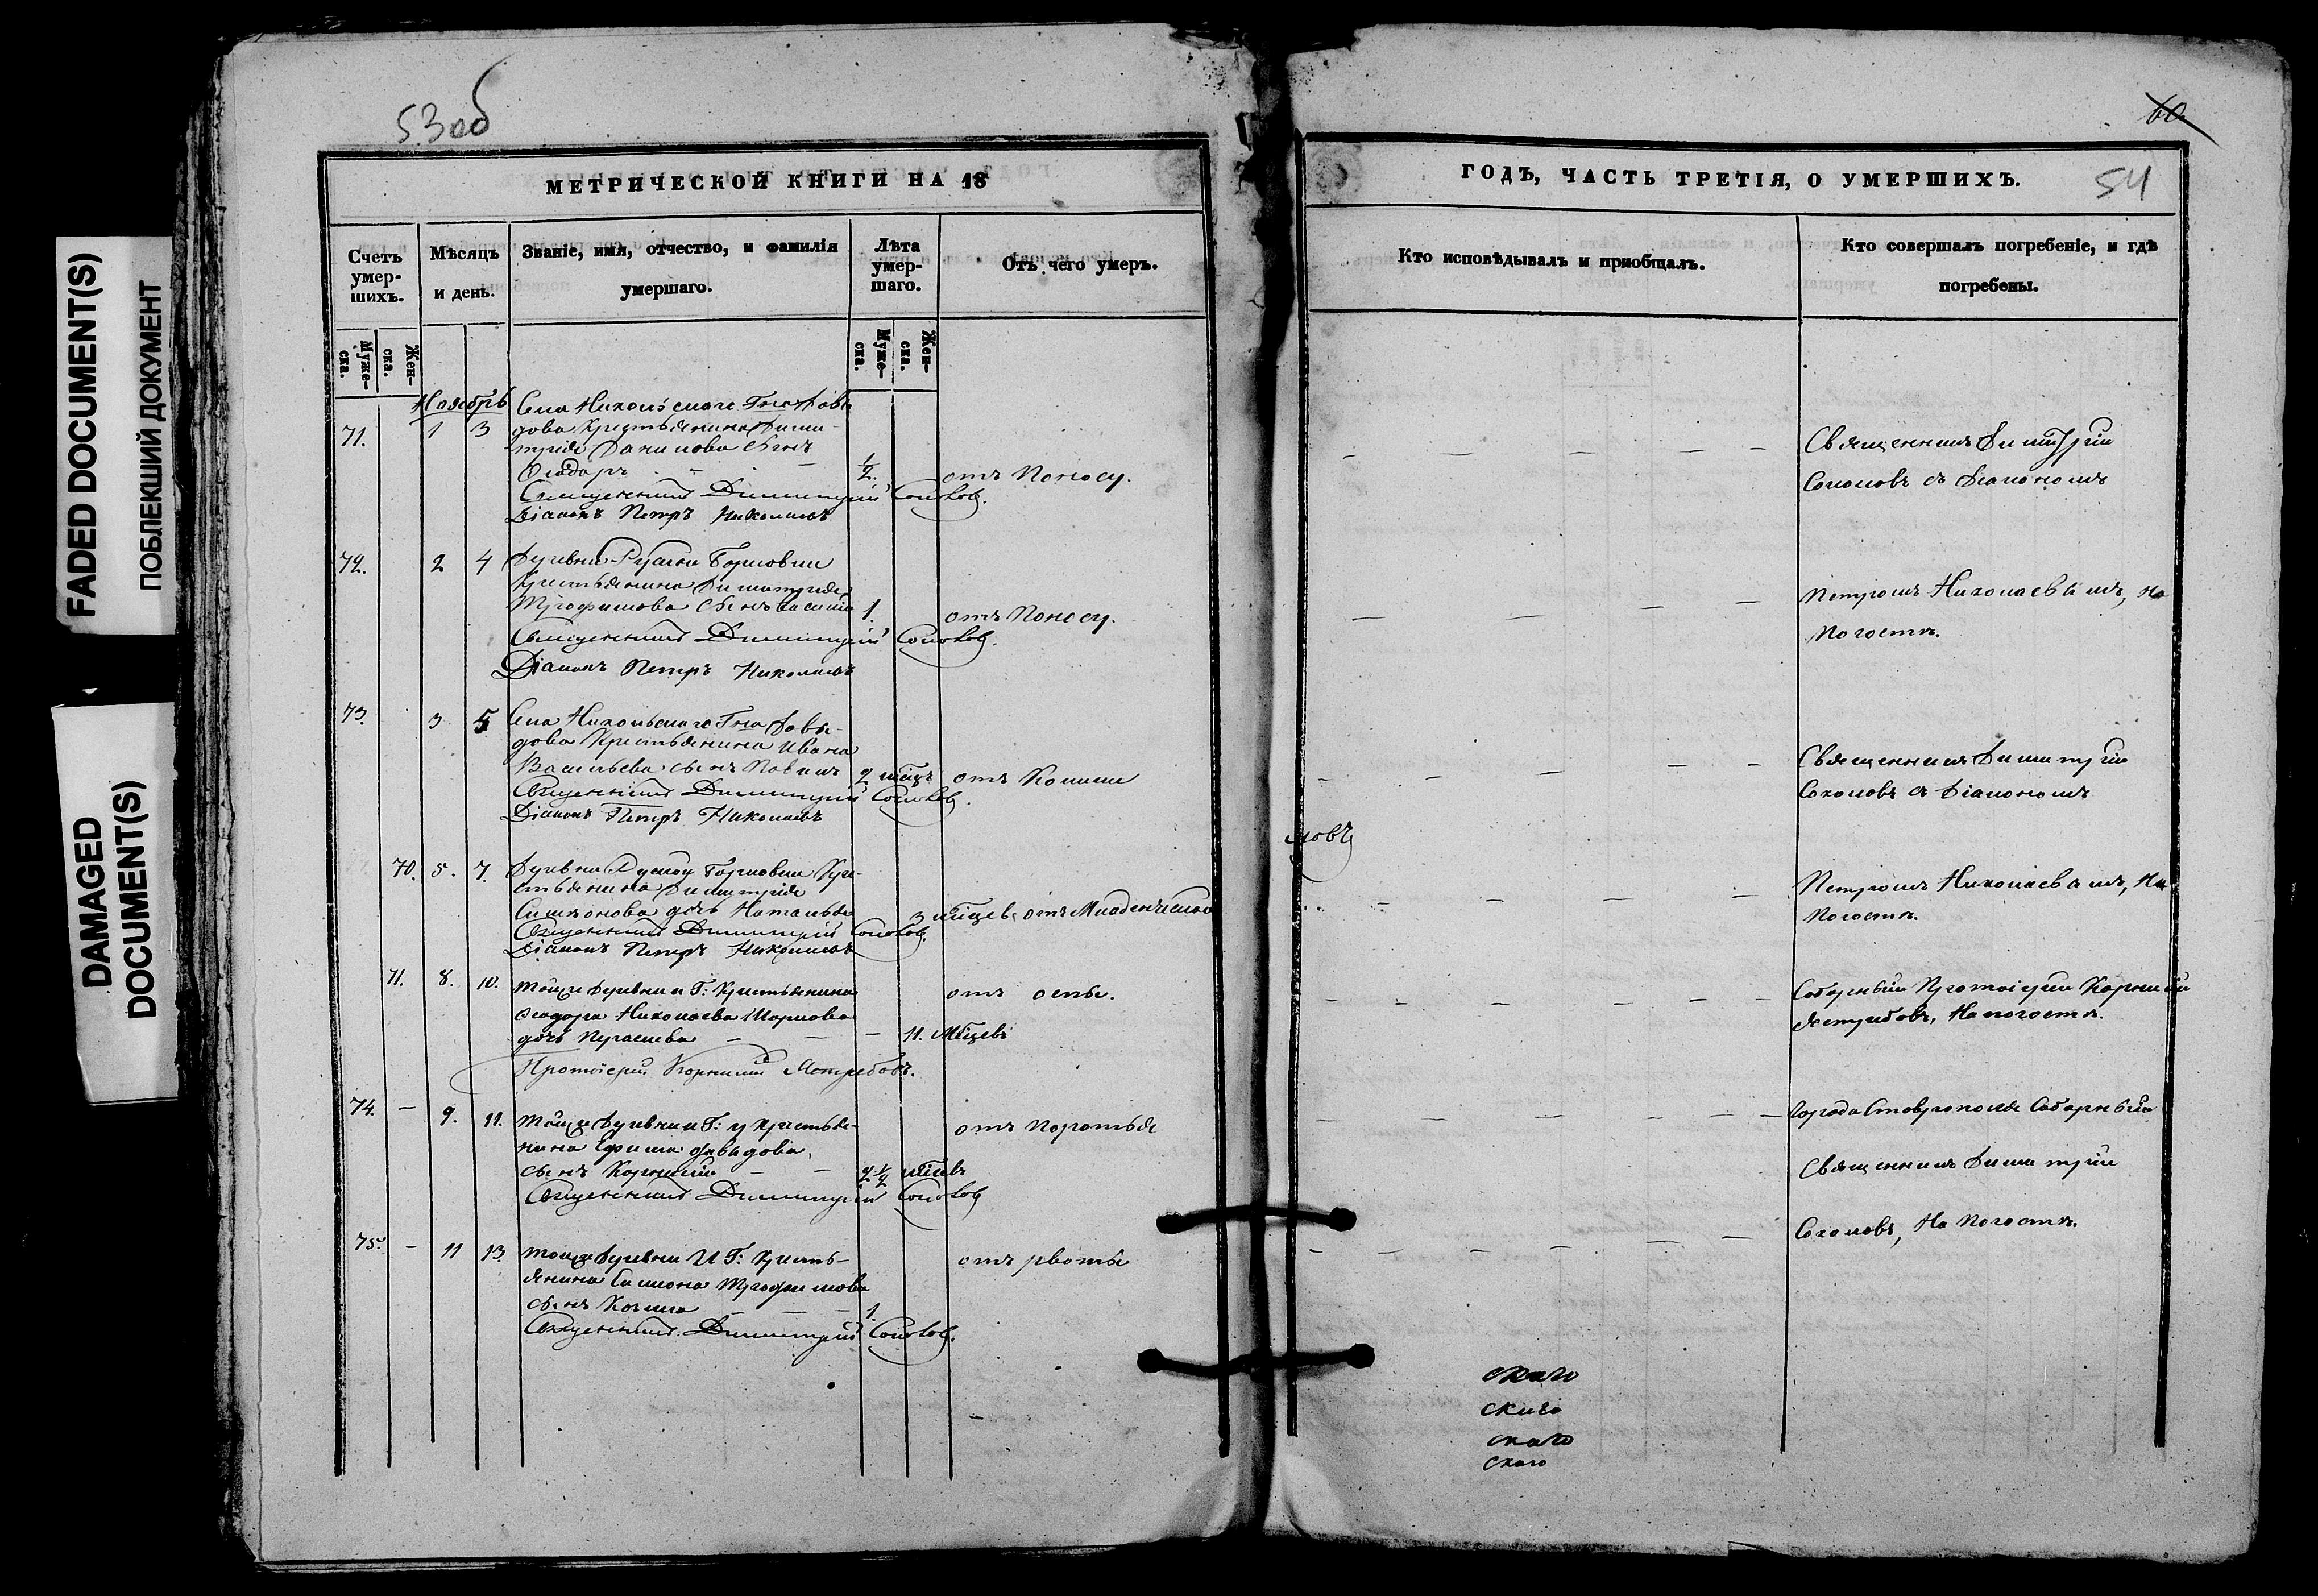 FADED DOCUMENT(S)
ПОБЛЕКШИЙ ДОКУМЕНТ
DAMAGED
DOCUMENT(S)
53об
МЕТРИЧЕСКОЙ КНИГИ НА 18
Счетъ
умер-
шихъ.
Мѣсяцъ
и день.
Званіе, имя, отчество, и фамилія
умершаго.
Лѣта
умер-
шаго.
Отъ чего умеръ.
Муже-
ска.
Жен-
ска.
Муже-
ска.
Жен-
ска.
Ноябрь
71. 1 3 Села Никольскаго Давы-
дова Крестьянина Дими-
трія Данилова сынъ
Ѳеодоръ 1/2. отъ поносу.
Священникъ Димитрій Соколовъ.
Діаконъ Петръ Николаевъ
72. 2 4 Деревни Русской Борковки
Крестьянина Димитрія
Трофимова сынъ 1. отъ поносу.
Священникъ Димитрій Соколовъ.
Діаконъ Петръ Николаевъ
73. 3 5 Села Никольскаго Давы-
дова Крестьянина Ивана
Васильева сынъ 2 отъ
Священникъ Димитрій Соколовъ.
Діаконъ Петръ Николаевъ
70. 5. 7. Деревни Русской Борковки Кре-
стьянина Димитрія
Симеонова дочь Наталья 3 мѣсяцев отъ Младенческой
Священникъ Димитрій Соколовъ.
Діаконъ Петръ Николаевъ
71. 8. 10. Тойже деревни Крестьянина
Ѳеодора Николаева отъ оспы.
дочь — — — 11. мѣсяцевъ
Протоіерей Корнилій Ястребовъ.
74. — 9. 11. Тойже деревни Кресть-
янина Ефима Давыдова отъ
сынъ Корнилій — —
Священникъ Димитрій Соколовъ
75. — 11 13. Тойже деревни Кресть-
янина Симеона Трофимова отъ рвоты
сынъ Козма — — — 1.
Священникъ Димитрій Соколовъ.
60
54
ГОДЪ, ЧАСТЬ ТРЕТІЯ, О УМЕРШИХЪ.
Кто исповѣдывалъ и пріобщалъ.
Кто совершалъ погребеніе, и гдѣ
погребены.
Священникъ Димитрій
Соколовъ съ Діакономъ
Петромъ Николаевымъ, на
погостѣ.
Священникъ Димитрій
Соколовъ съ Діакономъ
ловъ
Петромъ Николаевымъ, на
погостѣ.
Соборный Протоіерей Корнилій
Ястребовъ, на погостѣ.
Города Ставрополя Соборный
Священникъ Димитрій
Соколовъ, на погостѣ.
скаго
скаго
скаго
скаго